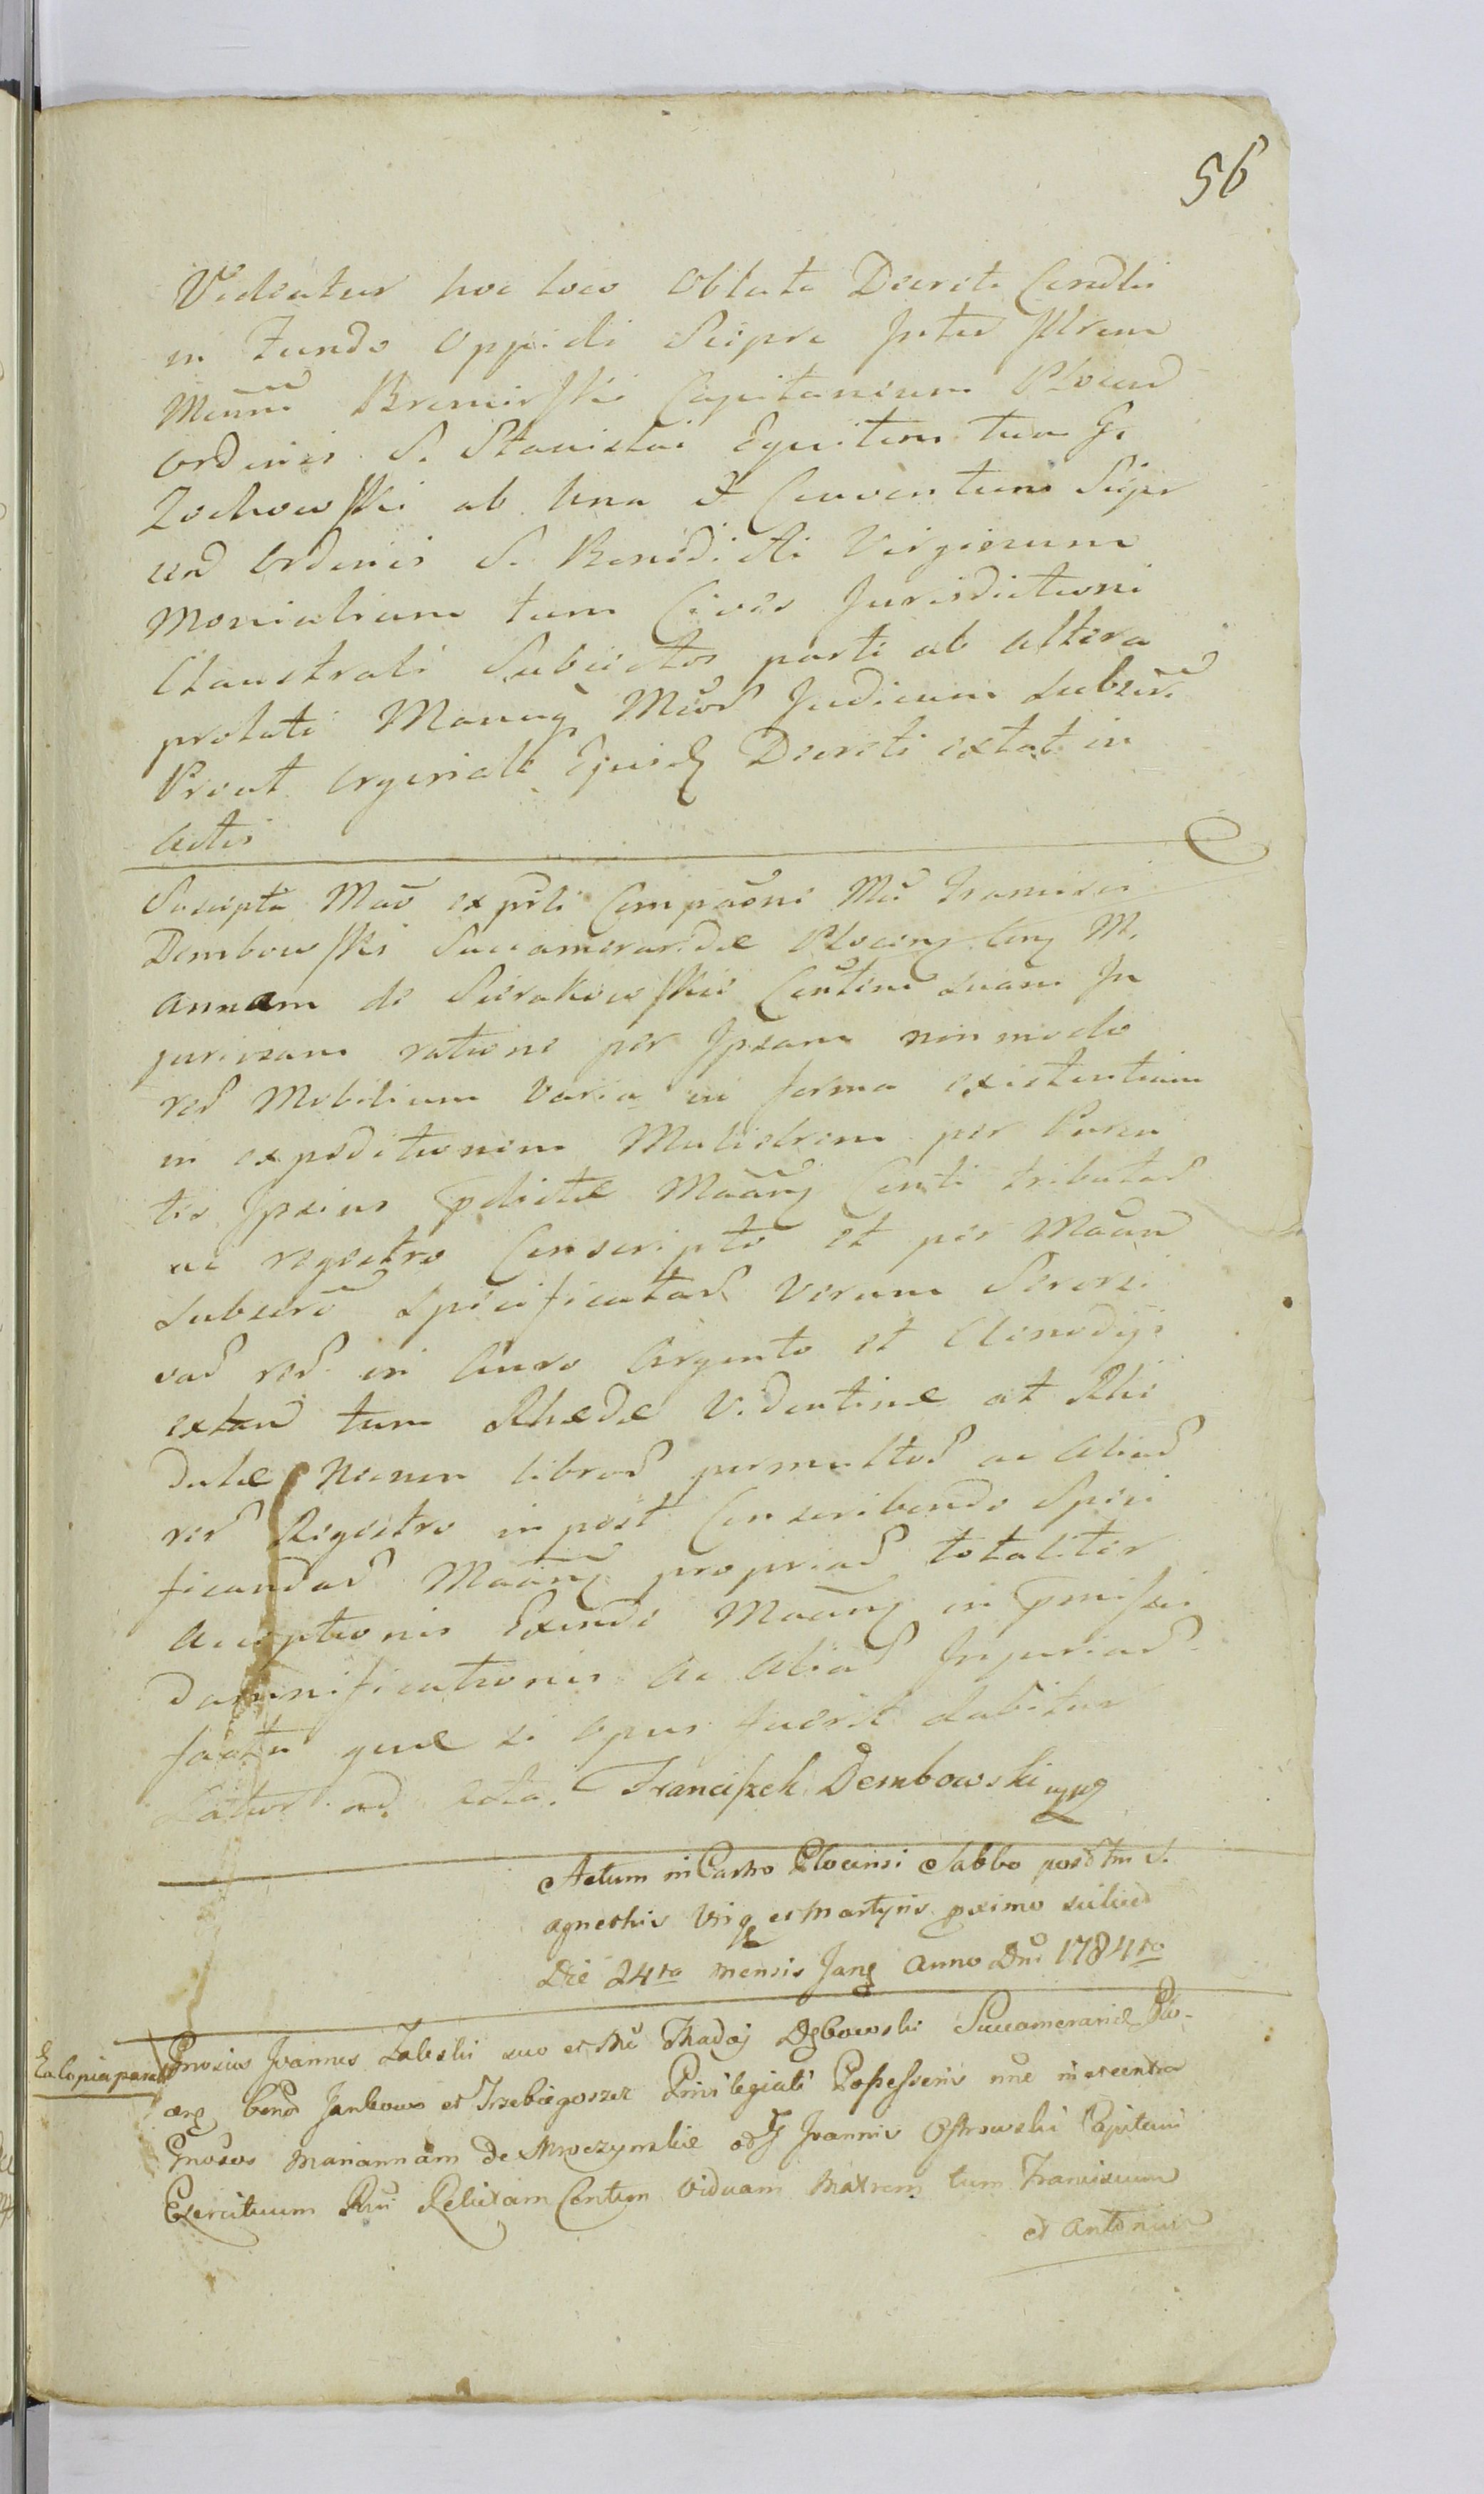 56
Videatur hoc loco Oblata Decreti Condli
in Fundo Oppidi Sierpc Inter Illrem
Mcum Kremirski Capitaneum Plocen
Ordinis S. Stanislai Equitem tum G.
Zochowski ab una et Conventum Sierpc
cen Ordinis S. Benedicti Virginum
Monialium tum Cives Jurisdictioni
Claustrali Subiectos parte ab altera
prolati Manuq Mcor Judicum subscri
Prout Orginale Ejusd Decreti extat in
Actis
Suscepta Mao ex prti Compaone Mci Francisci
Dembowski Succameraridæ Plocen Cong M.
Annam de Sierakowskie Contem suam In
juriosam ratione per Ipsam non modo
rer Mobilium varia in forma existentium
in expeditionem Muliebrem per Paren
tes Ipsius pdictæ Maang Conti tributar
ac regestro Conscripto et per Maam
subscro specificatar verum Diversi
var rer in Auro Argento et Clenodijs
extan tum Rhedæ Videntinæ at Rhe
dulæ Necnon libror permultor ac Aliar
rer Registro inpost Conscribendo Speci
ficandar Maang propriar totaliter
Acceptionis Exinde Maang in pmissis
damnificationis Ac Aliar Injuriar
facta quæ si Opus fuerit dabitur
Latius ad Acta. Franciszek Dembowski mpp
Actum in Castro Plocensi Sabbo post Fm S.
Agnethis Virg et Martyris pximo scilicet
Die 24ta mensis Jang Anno Dni 1784to
Ea copia parata
Gnosius Joannes Zaleski suo et Mci Thadæj Dębowski Succamerarid Plo-
cen bonor Jankowo et Trzebiegoszcz Privilegiati Possessoris nne in et contra
Gnosos Mariannam de Mroczynskie od G Joannis Ostrowski Capitani
Exercituum Rni Relictam Contem Viduam Matrem tum Franciscum
et Antonium